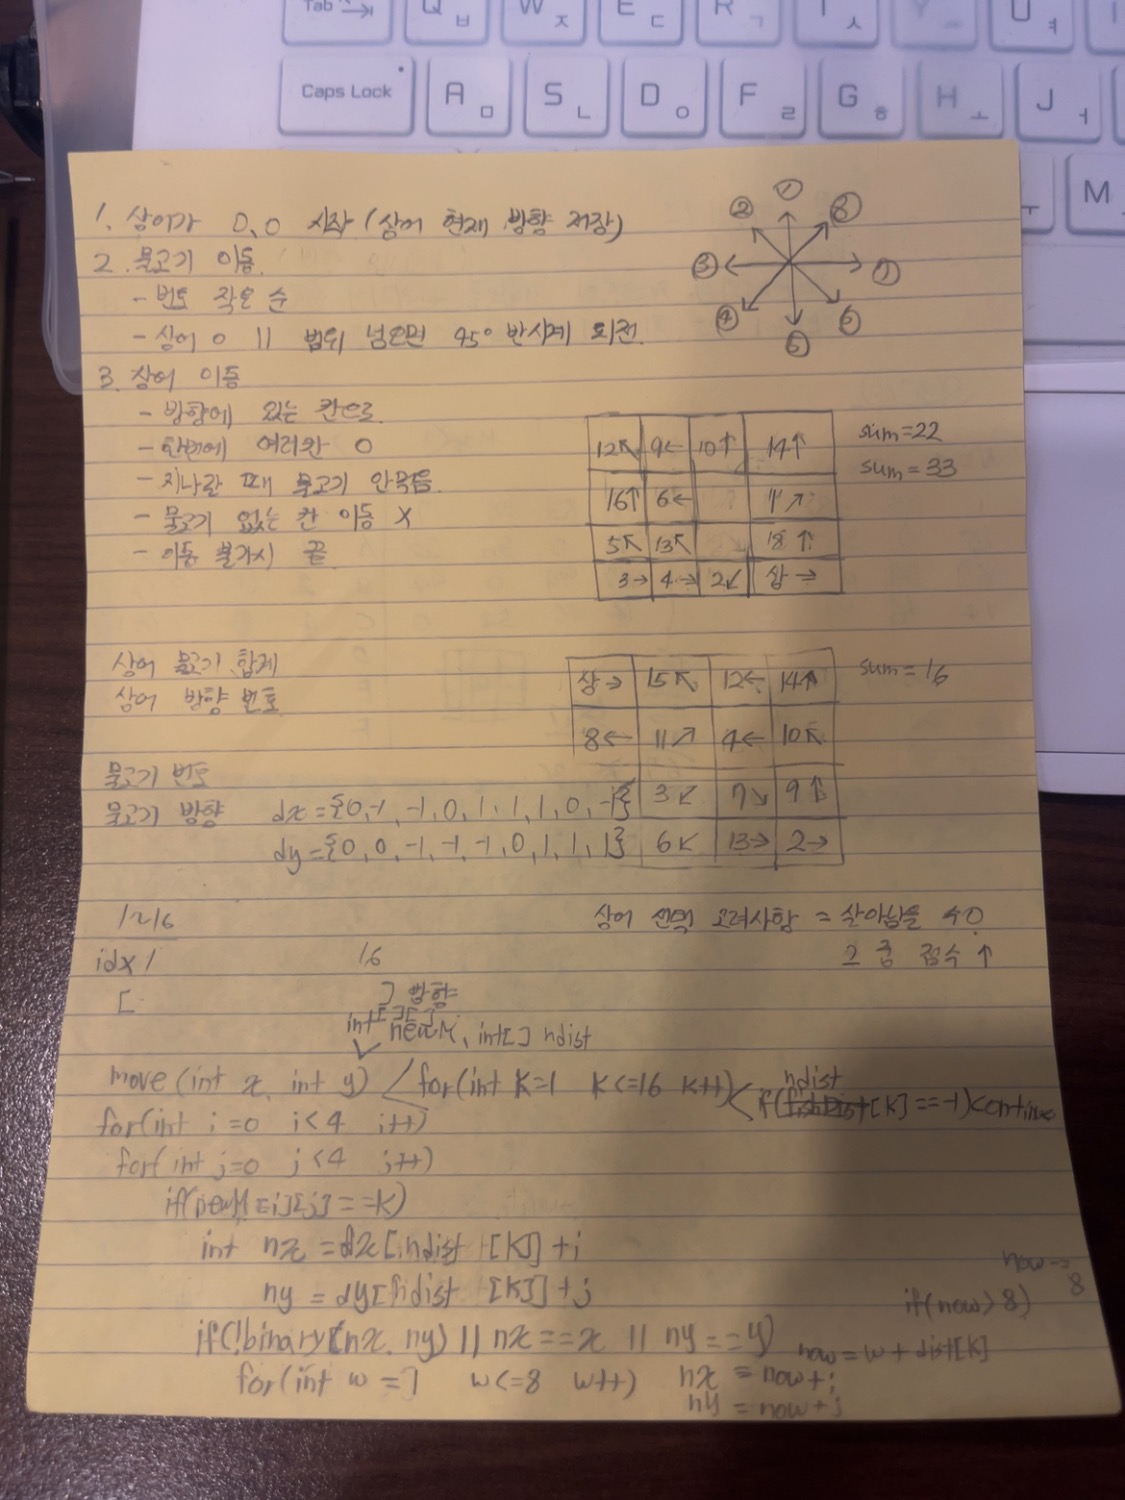 Tab
Q ㅂ
W ㅈ
E ㄷ
R ㄱ
ㅅ
U ㅕ
Caps Lock
A ㅁ
S ㄴ
D ㅇ
F ㄹ
G ㅎ
H ㅗ
J ㅓ
M
1. 상어가 0,0 시작 (상어 현재 방향 저장)
2. 물고기 이동
- 번호 작은 순
- 상어 0 || 범위 넘으면 45° 반시계 회전
3. 상어 이동
- 방향에 있는 칸으로
- 한번에 여러칸 O
- 지나갈 때 물고기 안먹음
- 물고기 없는 칸 이동 X
- 이동 불가시 끝
① ② ③ ④ ⑤ ⑥ ⑦ ⑧
12↖ 9← 10↑ 14↑
16↑ 6← ↗
5↖ 13↖ ↑
3→ 4→ 2↙ 상→
sum=22
sum=33
상어 물고기 합계
상어 방향 번호
상→ 15↖ 12← 14↑
8← 11↗ 4← 10↖
3↙ 7↘ 9↑
6↙ 13→ 2→
sum=16
물고기 번호
물고기 방향 dx={0,-1,-1,0,1,1,1,0,-1}
dy={0,0,-1,-1,-1,0,1,1,1}
상어 선택 고려사항 =
그 중 점수 ↑
idx 1 16
[ ] 방향
newM, int[] ndist
move (int x, int y) for(int k=1 k<=16 k++)
ndist
if( [k]==-1)continue
for(int i=0 i<4 i++)
for(int j=0 j<4 j++)
if(newM[i][j]==k)
int nx=dx[ndist [k]]+i
ny=dy[ndist [k]]+j
if(!binary(nx, ny) || nx==x || ny==y)
for(int w=1 w<=8 w++)
now=w+dist[k]
if(now>8)
now-=
8
nx=now+i
ny=now+j